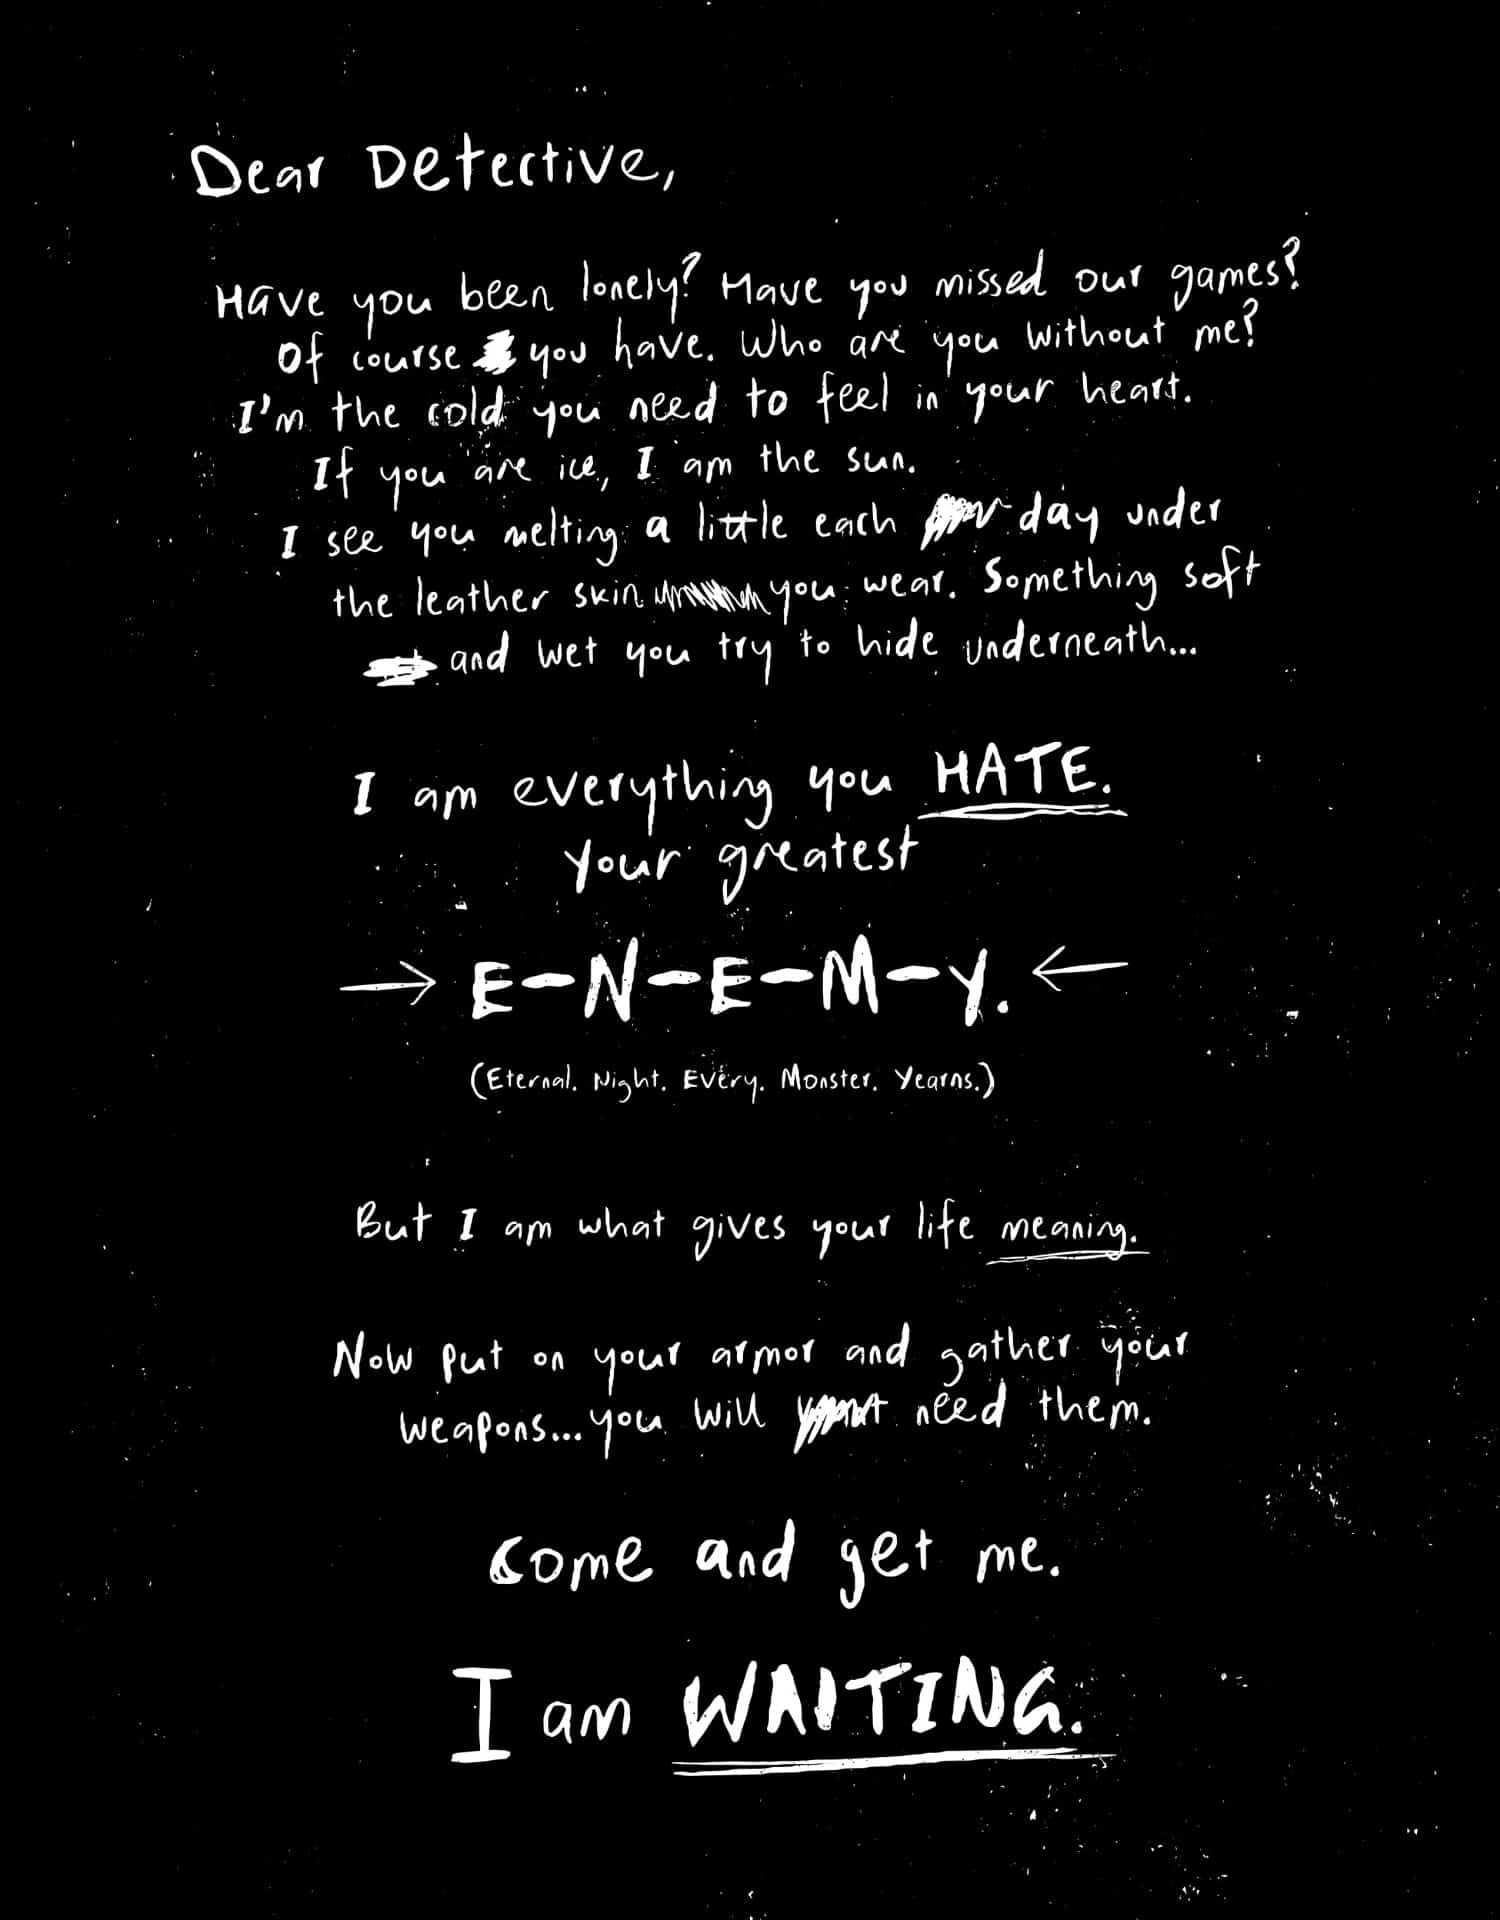 Dear Detective,
Have you been lonely? Have you missed our games?
Of course you have. Who are you without me?
I'm the cold you need to feel in your heart.
If you are ice, I am the sun.
I see you melting a little each day under
the leather skin you wear. Something soft
and wet you try to hide underneath...
I am everything you HATE.
Your greatest
→ E-N-E-M-Y. ←
(Eternal. Night. Every. Monster. Yearns.)
But I am what gives your life meaning.
Now put on your armor and gather your
weapons... you will need them.
Come and get me.
I am WAITING.